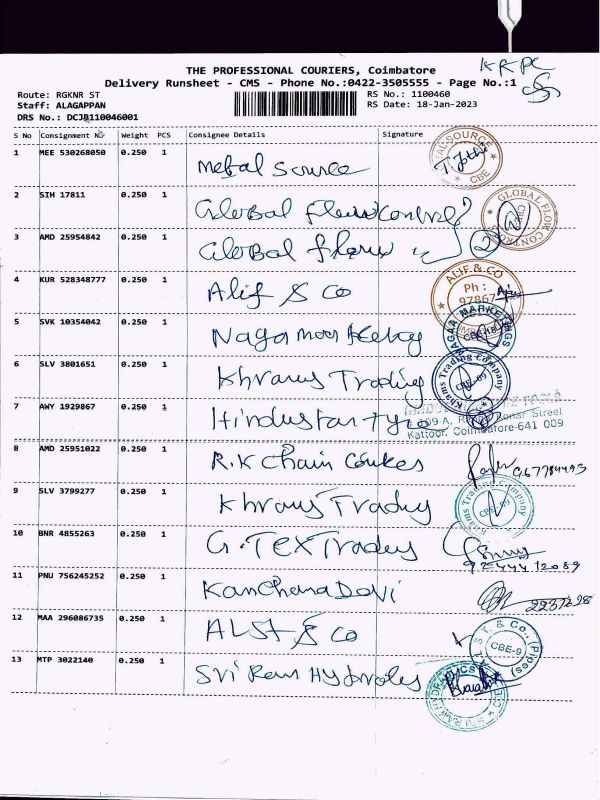 KRPC
THE PROFESSIONAL COURIERS, Coimbatore
Delivery Runsheet - CMS - Phone No.:0422-3505555 - Page No.:1
Route: RGKNR ST
RS No.: 1100460
Staff: ALAGAPPAN
RS Date: 18-Jan-2023
DRS No.: DCJB110046001
S No Consignment No Weight PCS Consignee Details Signature
1 MEE 530268050 0.250 1 Metal Source
2 SIH 17811 0.250 1 Global Flow Control
3 AMD 25954842 0.250 1 Global flow 2
4 KUR 528348777 0.250 1 Alif & Co ALIF & CO Ph :
5 SVK 10354042 0.250 1
6 SLV 3801651 0.250 1 Khrams Trading Khrams Trading Company CBE-09
7 AWY 1929867 0.250 1 Hindustan Tyre
Street
Kattoor, Coimbatore-641 009
8 AMD 25951022 0.250 1 R.K Chain
9 SLV 3799277 0.250 1 Khrams Trading Khrams Trading Company CBE-09
10 BNR 4855263 0.250 1 G.TEX Tradey
11 PNU 756245252 0.250 1 Kanchana Devi
12 MAA 296086735 0.250 1 ALST & Co A.L.S.T. & Co., (Pipes) CBE-9
13 MTP 3022140 0.250 1 Sri Ram Hydrolys